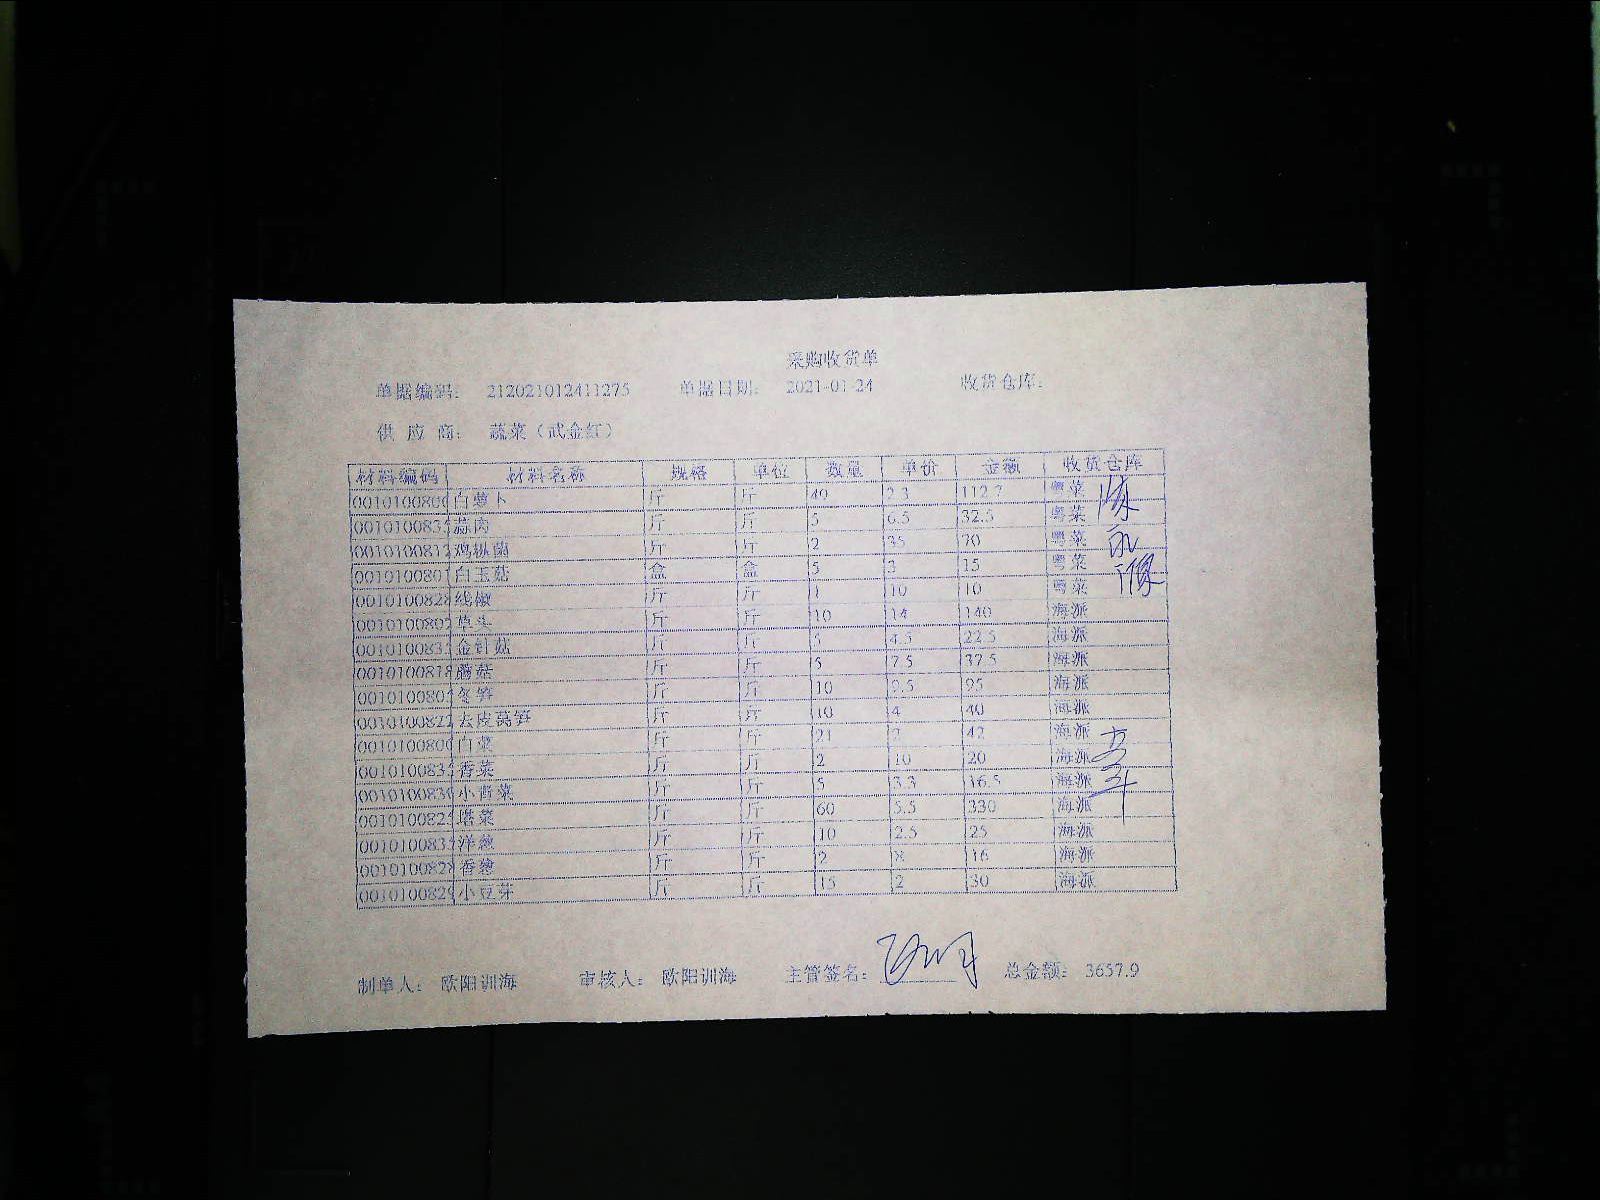 采购收货单
单据编码： 212021012411275 单据日期： 2021-01-24 收货仓库：
供 应 商： 蔬菜（武金红）
材料编码 材料名称 规格 单位 数量 单价 金额 收货仓库
0010100800 白萝卜 斤 斤 粤菜
001010083 蒜肉 斤 斤 5 6.5 32.5 粤菜
001010081 鸡枞菌 斤 斤 2 35 70 粤菜
001010080 白玉菇 盒 盒 5 3 15 粤菜
001010082 线椒 斤 斤 1 10 10 粤菜
001010080 草头 斤 斤 10 14 140 海派
001010083 金针菇 斤 斤 5 4.5 22.5 海派
001010081 蘑菇 斤 斤 5 7.5 37.5 海派
001010080 冬笋 斤 斤 10 9.5 95 海派
001010082 去皮莴笋 斤 斤 10 4 40 海派
001010080 白菜 斤 斤 21 2 42 海派
001010083 香菜 斤 斤 2 10 20 海派
001010083 小青菜 斤 斤 5 3.3 16.5 海派
001010082 塔菜 斤 斤 60 5.5 330 海派
001010083 洋葱 斤 斤 10 2.5 25 海派
001010082 香葱 斤 斤 2 8 16 海派
001010082 小豆芽 斤 斤 15 2 30 海派
制单人： 欧阳训海 审核人： 欧阳训海 主管签名： 总金额： 3657.9